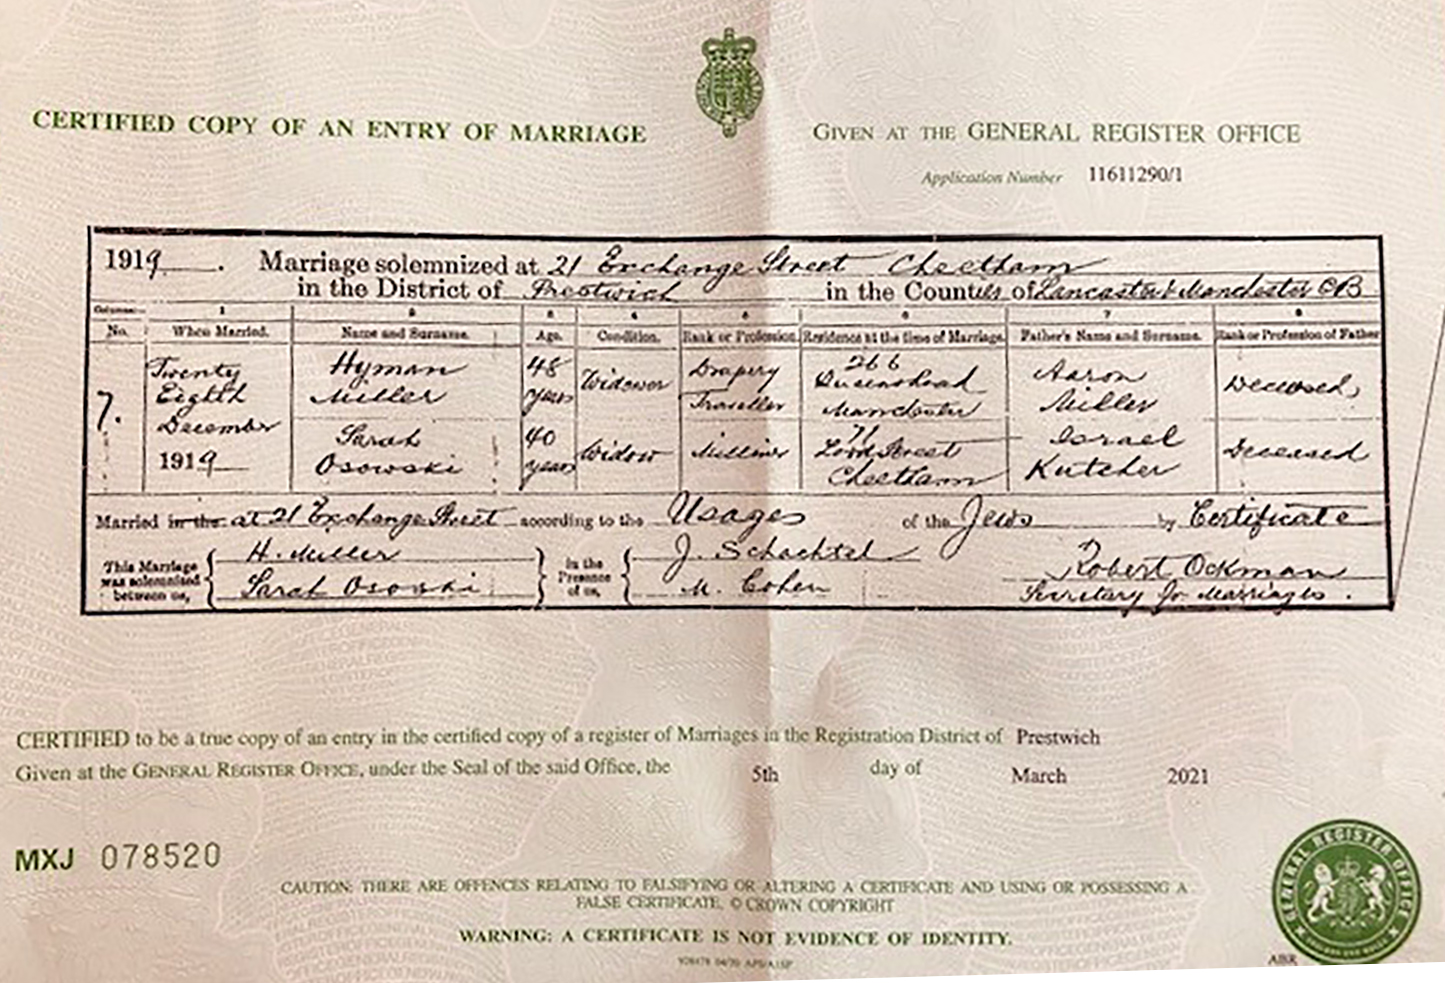 CERTIFIED COPY OF AN ENTRY OF MARRIAGE
GIVEN AT THE GENERAL REGISTER OFFICE
Application Number 11611290/1
1919. Marriage solemnized at 21 Exchange Street Cheetham
in the District of Prestwich in the Counties of Lancaster & Manchester CB
Columns:— 1 2 3 4 5 6 7 8
No. When Married. Name and Surname. Age. Condition. Rank or Profession. Residence at the time of Marriage. Father's Name and Surname. Rank or Profession of Father
7. Twenty Eighth December 1919
Hyman Miller 48 years Widower Drapery Traveller 266 Queens Road Manchester Aaron Miller Deceased
Sarah Osowski 40 years Widow Milliner 71 Lord Street Cheetham Israel Kutcher Deceased
Married in the at 21 Exchange Street according to the Usages of the Jews by Certificate
This Marriage was solemnized between us, H. Miller Sarah Ososki
in the Presence of us, J. Schachtel M. Cohen
Robert Ockman
Secretary for Marriages.
CERTIFIED to be a true copy of an entry in the certified copy of a register of Marriages in the Registration District of Prestwich
Given at the GENERAL REGISTER OFFICE, under the Seal of the said Office, the 5th day of March 2021
MXJ 078520
CAUTION: THERE ARE OFFENCES RELATING TO FALSIFYING OR ALTERING A CERTIFICATE AND USING OR POSSESSING A
FALSE CERTIFICATE. © CROWN COPYRIGHT
WARNING: A CERTIFICATE IS NOT EVIDENCE OF IDENTITY.
GENERAL REGISTER OFFICE
ABR